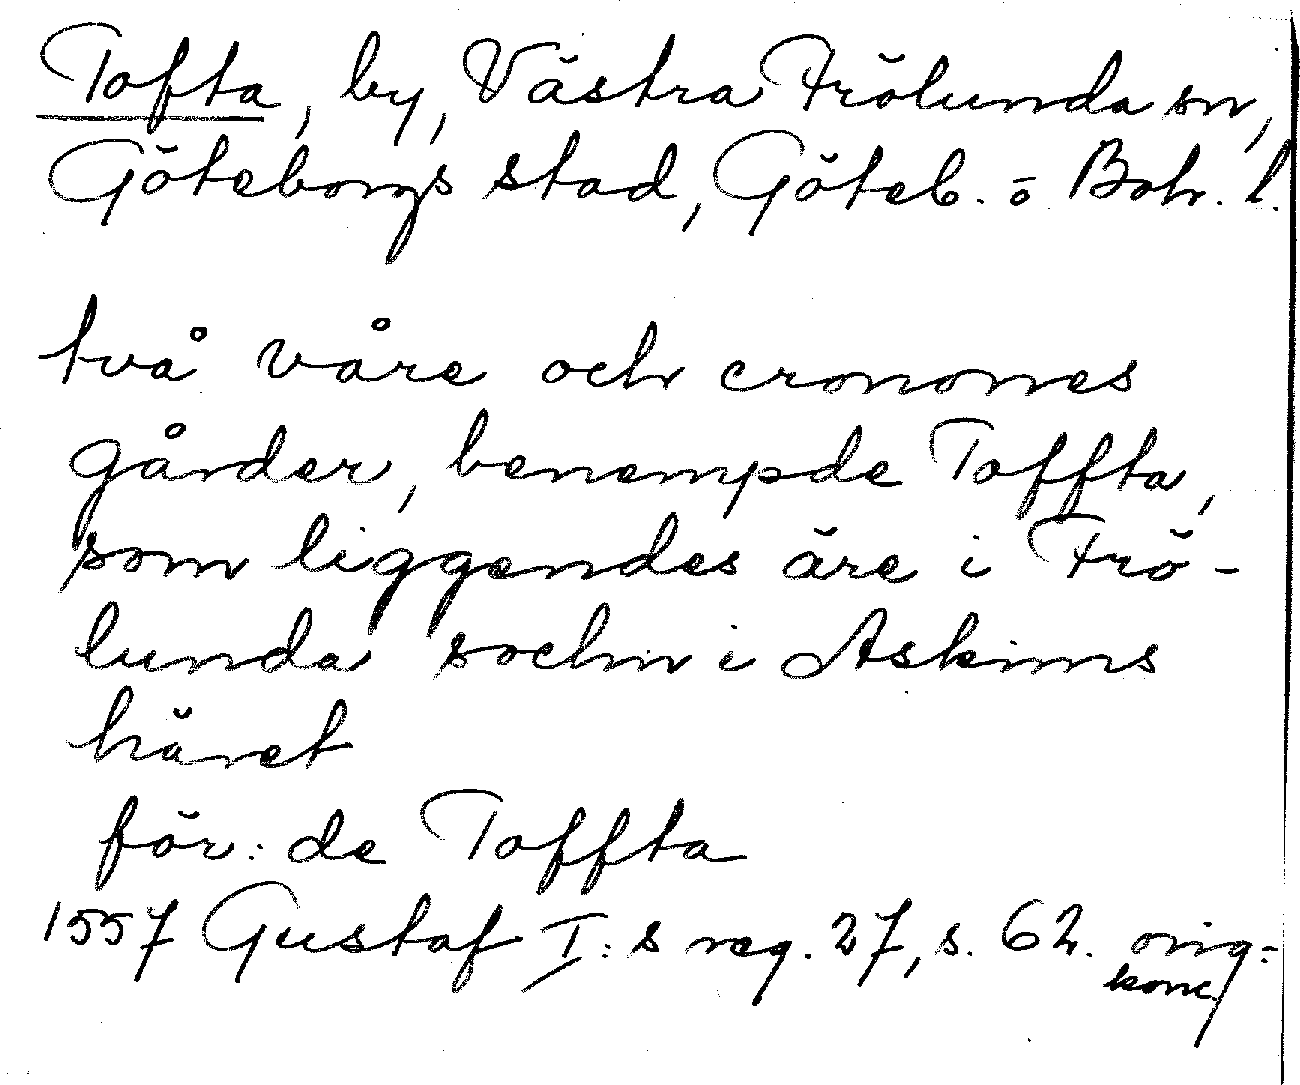 Tofta, by, Västra Frölunda sn,
Göteborgs stad, Göteb. o Boh. l.
två våre och cronones
gårder, benempde Toffta,
som liggendes äre i Frö-
lunda sochn i Askims
häret
för: de Toffta
1557 Gustaf I:s reg. 27, s. 62. orig-
konc.